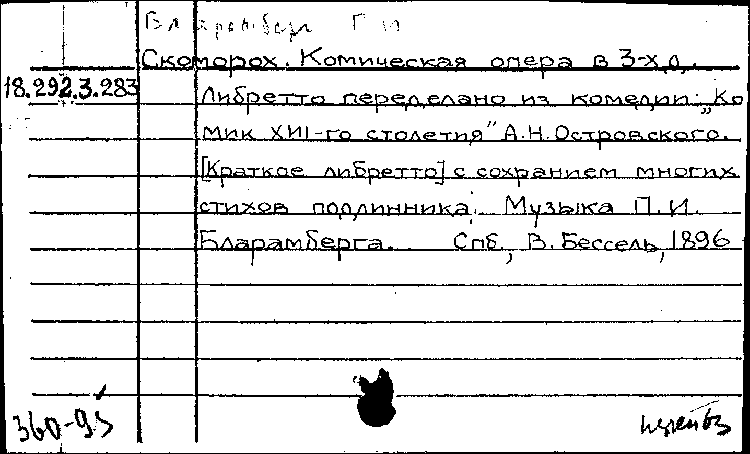 Бларамберг П И
Скоморох. Комическая опера в 3-х д.
18.292.3.283
Либретто переделано из комедии: „Ко
мик XVII-го столетия" А.Н.Островского.
[Краткое либретто] с сохранием многих
стихов подлинника. Музыка П.И.
Бларамберга. Спб., В. Бессель, 1896
360-95